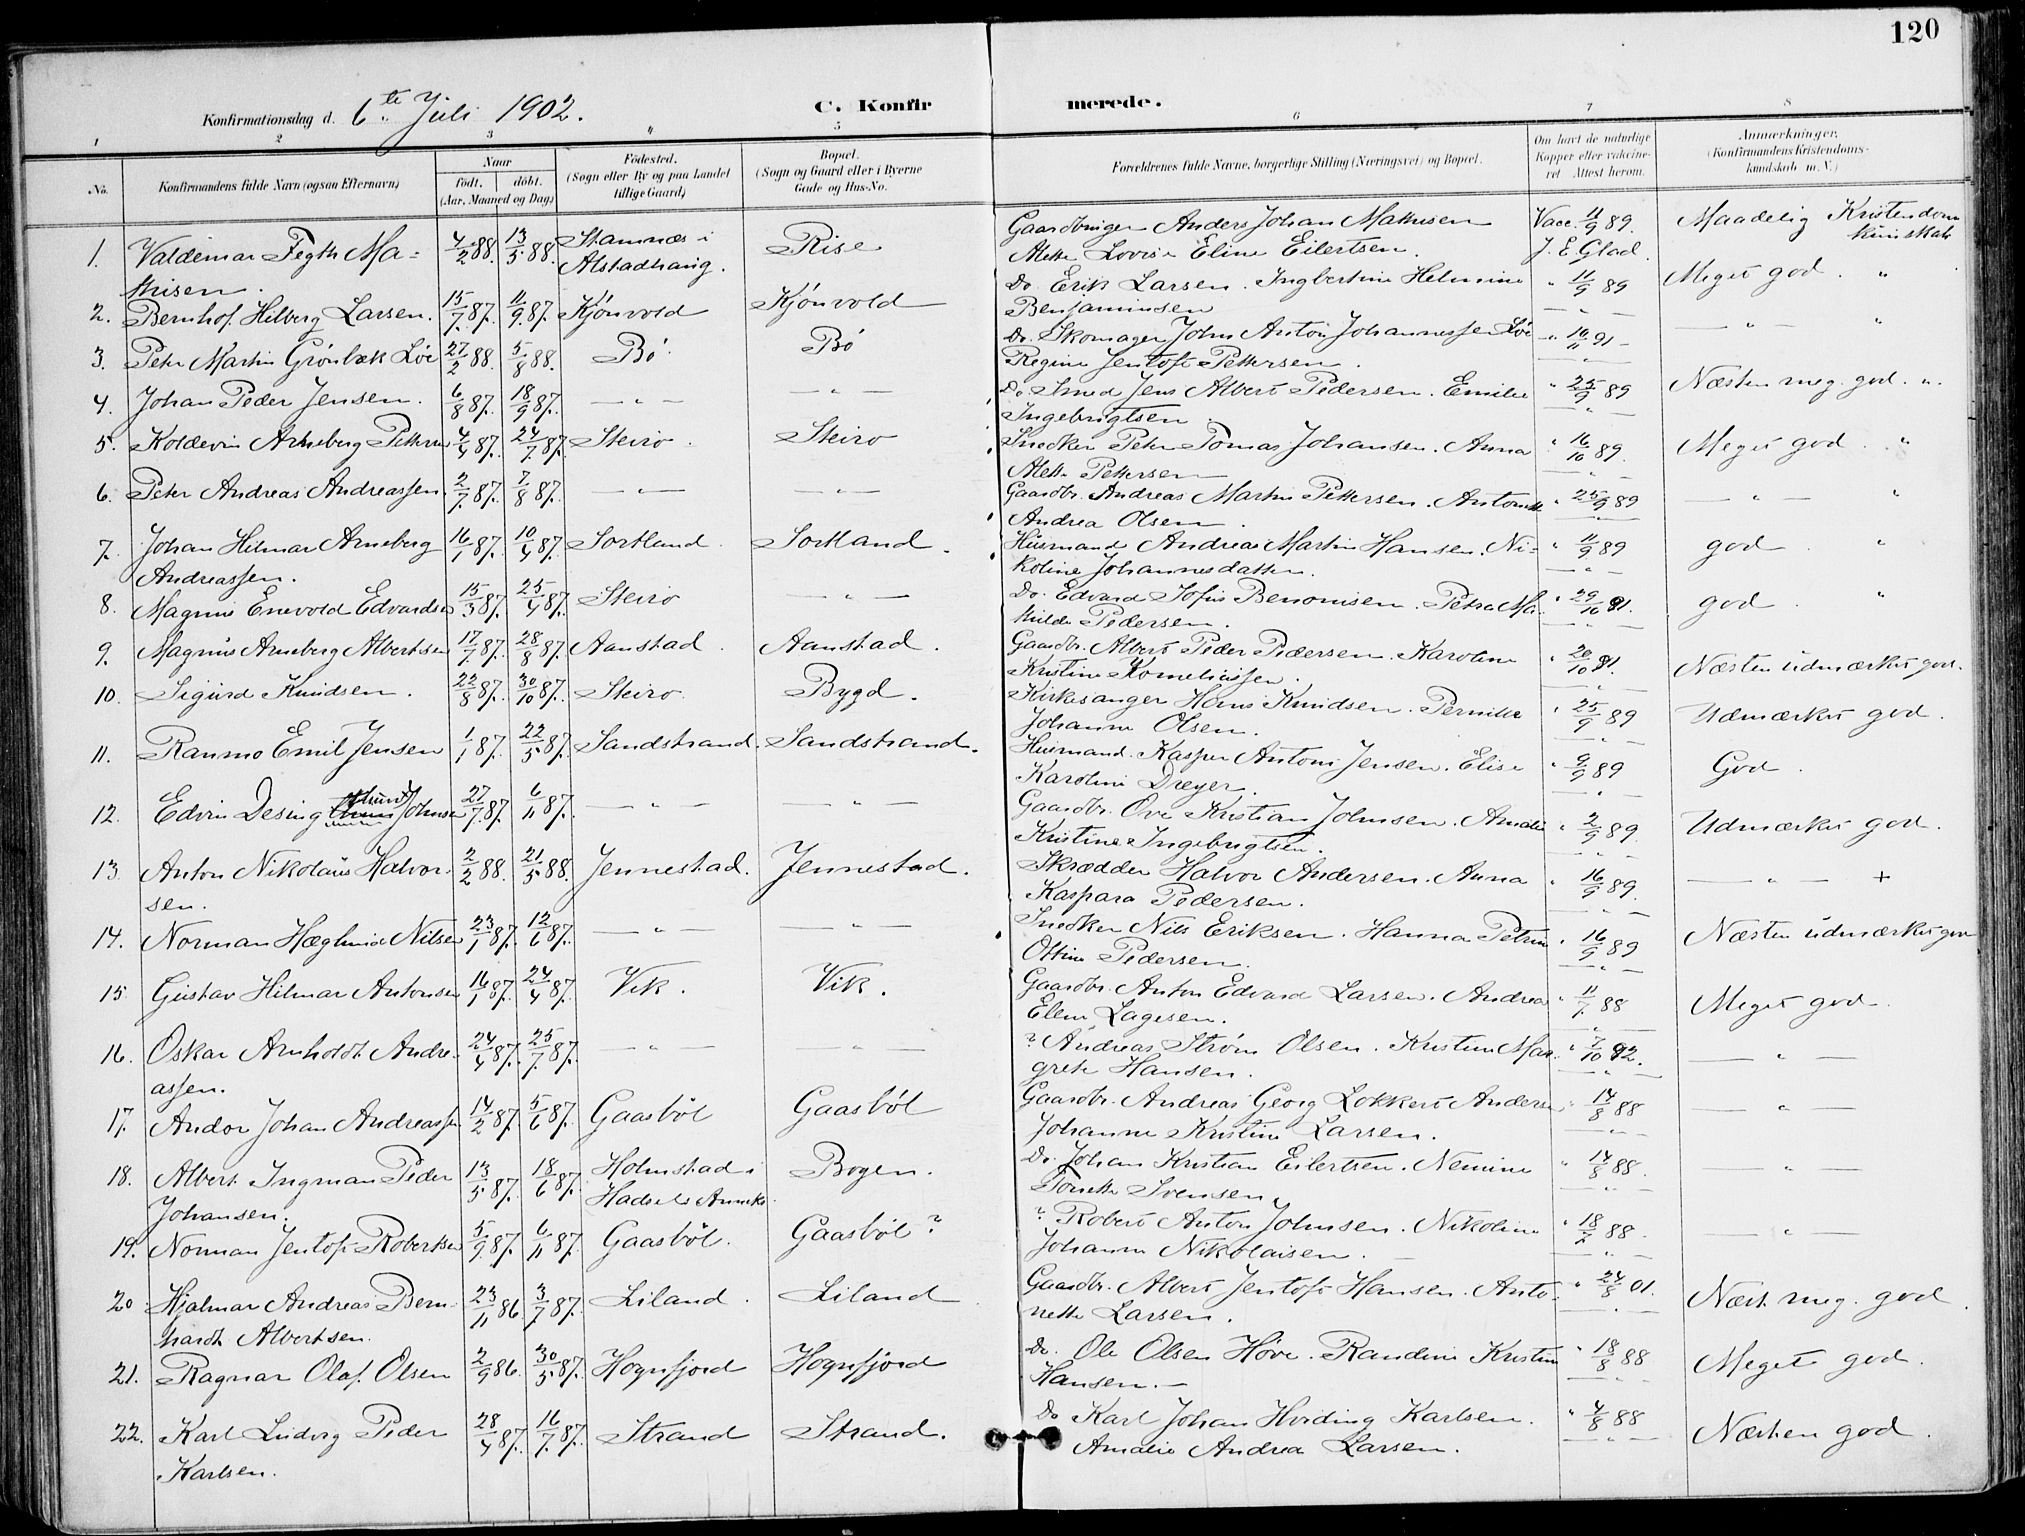 120
Konfirmationsdag d. 6te Juli 1902. C. Konfirmerede.
1 2 3 4 5 6 7 8
No. Konfirmandens fulde Navn (ogsaa Efternavn) Naar født. døbt. (Aar, Maaned og Dag) Fødested. (Sogn eller By og paa Landet tillige Gaard) Bopæl. (Sogn og Gaard eller i Byerne Gade og Hus-No. Forældrenes fulde Navne, borgerlige Stilling (Næringsvei) og Bopæl. Om havt de naturlige Kopper eller vaccineret Attest herom. Anmærkninger. (Konfirmandens Kristendomskundskab m. V.)
1. Valdemar Fegth Ma- 4/2 88. 13/5 88. Stamnæs i Rise Gaardbruger Anders Johan Mathisen Vacc. 11/9 89. Maadelig Kristendoms
thisen. Alstadhaug. Alette Lovise Eline Eilertsen. J. E. Glad. kunskab
2. Bernhof Hilberg Larsen. 15/7 87. 11/9 87. Kjønvold Kjønvold Do. Erik Larsen. Ingbertine Helmine " 11/9 89 Meget god. "
Benjaminsen
3. Peter Martin Grønbæk Löe 27/2 88. 5/8 88. Bö Bö Do. Skomager John Anton Johannessen Löe " 16/11 91 — " — "
Regine Jentoft Pettersen.
4. Johan Peder Jensen. 6/8 87. 18/9 87. — " — — " — Do. Smed Jens Albert Pedersen. Emilie " 25/9 89 Næsten meg. god. "
Ingebrigtsen
5. Koldevin Arneberg Petters 4/4 87. 24/7 87. Steiro. Steiro Snedker Peter Tomas Johansen. Anna " 16/10 89. Meget god. "
Alette Pettersen
6. Peter Andreas Andreassen. 2/7 87. 7/8 87. — " — — " — Gaardbr. Andreas Martin Pettersen. Antonette " 25/9 89 — " — "
Andrea Olsen.
7. Johan Hilmar Arneberg 16/1 87. 10/4 87. Sortland. Sortland. Husmand Andreas Martin Hansen. Ni- " 11/9 89 god. "
Andreassen. koline Johannesdatter.
8. Magnus Enevold Edvardsen 15/3 87. 25/4 87. Steiro — " — Do. Edvard Sofus Benonisen. Petra Ma- " 29/10 91. god. "
thilde Pedersen.
9. Magnus Arneberg Albertsen 17/7 87. 28/8 87. Aanstad. Aanstad. Gaardbr. Albert Peder Pedersen. Karoline " 20/10 91. Næsten udmærket god.
Kristine Korneliussen.
10. Sigurd Knudsen. 22/8 87. 30/10 87. Steiro. Bygd. Kirkesanger Hans Knudsen. Pernille " 25/9 89 Udmærket god.
Johanne Olsen.
11. Ranmo Emil Jensen 1/1 87. 22/5 87. Sandstrand. Sandstrand. Husmand. Kasper Antoni Jensen. Elise " 9/9 89 God.
Karoline Dreyer.
12. Edvin Desing Johnsen 27/7 87. 6/11 87. — " — — " — Gaardbr. Ove Kristian Johnsen. Amalie " 2/9 89. Udmærket god.
Kristine Ingebrigtsen.
13. Anton Nikolaus Halvor- 2/2 88. 21/5 88. Jennestad. Jennestad. Skrædder Halvor Andersen. Anna " 16/9 89. — " — +
sen. Kaspara Pedersen.
14. Norman Hæglund Nilsen 23/1 87. 12/6 87. — " — — " — Snedker Nils Eriksen. Hanna Petrine " 16/9 89 Næsten udmærket god
Ottine Pedersen.
15. Gustav Hilmar Antonsen 16/1 87. 24/4 87. Vik. Vik. Gaardbr. Anton Edvard Larsen. Andrea " 11/7 88 Meget god
Elen Lagesen.
16. Oskar Arnholdt Andre- 24/4 87. 25/7 87. — " — — " — ? Andreas Strøm Olsen. Kristine Mar- " 7/10 92. — " —
assen. grete Hansen.
17. Andor Johan Andreassen 14/2 87. 5/6 87. Gaasböl Gaasböl Gaardbr. Andreas Georg Lokkert Andersen " 14/8 88 — " —
Johanne Kristine Larsen.
18. Albert Ingman Peder 13/5 87. 18/6 87. Holmstad i Bogen. Do. Johan Kristian Eilertsen. Nemine " 14/8 88. — " —
Johansen. Hadsels Anneks. Tonette Svensen.
19. Norman Jentoft Robertsen 5/9 87. 6/11 87. Gaasböl. Gaasböl? ? Robert Anton Johnsen. Nikoline " 18/7 88. — " —
Johanne Nikolaisen.
20 Hjalmar Andreas Bern- 23/11 86. 3/7 87. Liland. Liland Gaardbr. Albert Jentoft Hansen. Anto- " 24/8 01. Næst. meg. god.
hardt Albertsen. nette Larsen.
21. Ragnar Olaf Olsen 2/9 86. 30/5 87. Hognfjord Hognfjord Do. Ole Olsen Höve. Randine Kristine " 18/8 88 Meget god.
Hansen.
22. Karl Ludvig Peder 28/4 87. 16/7 87. Strand Strand. Do Karl Johan Hviding Karlsen. " 4/8 88 Næsten god.
Karlsen. Amalie Andrea Larsen.